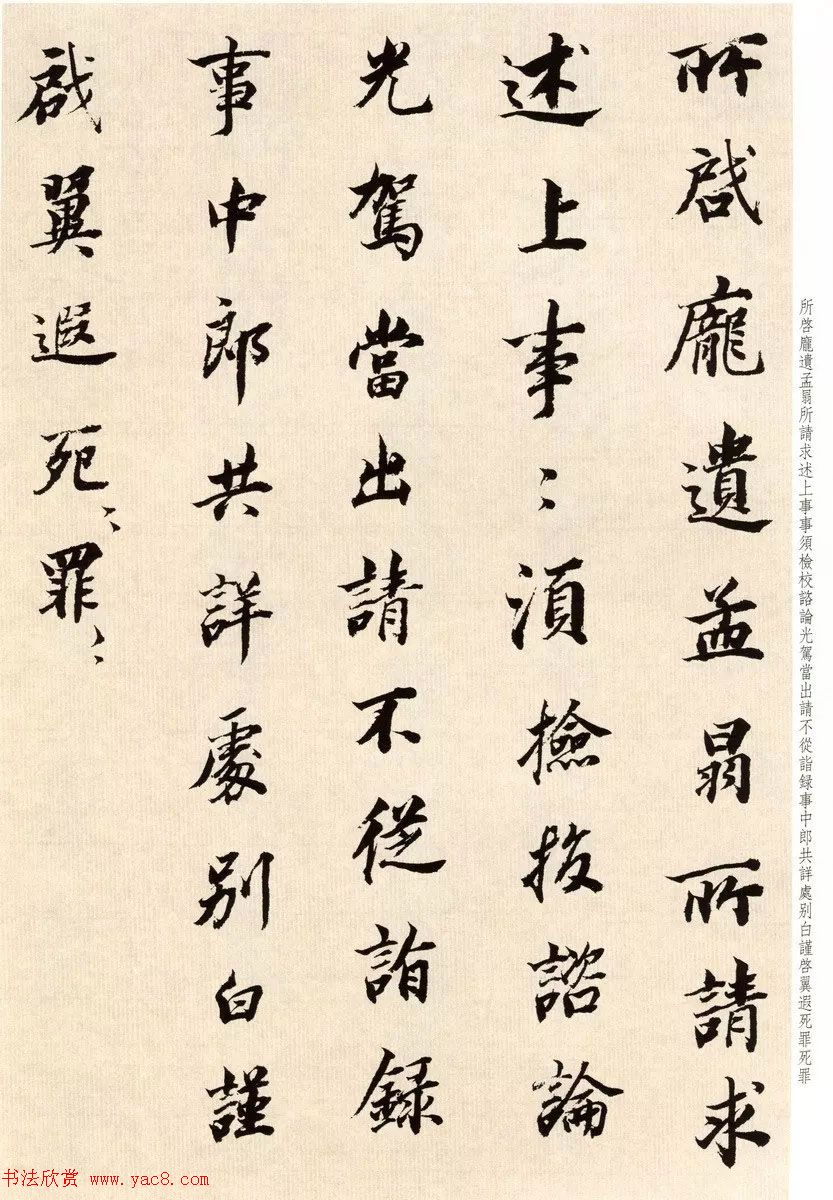 所啓龐遺孟昻所請求
述上事〻須檢校諮論
光駕當出請不從詣録
事中郎共詳處别白謹
啓翼遐死〻罪〻
所啓龐遺孟昻所請求述上事事須檢校諮論光駕當出請不從詣録事中郎共詳處别白謹啓翼遐死罪死罪
书法欣赏 www.yac8.com